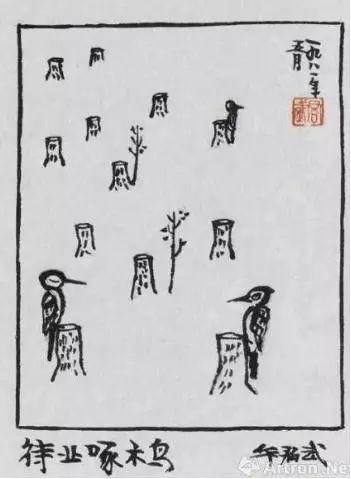 一九八一年
待业啄木鸟
华君武
Artron.Net